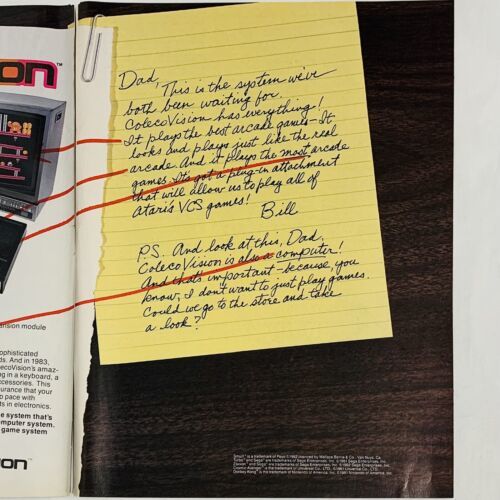 ion
TM
Dad,
This is the system we've
both been waiting for.
ColecoVision has everything!
It plays the best arcade games—It
looks and plays just like the real
arcade. And it plays the most arcade
games. It's got a plug-in attachment
that will allow us to play all of
Atari's VCS games!
Bill
P.S. And look at this, Dad.
ColecoVision is also a computer!
And that's important—because, you
know, I don't want to just play games.
Could we go to the store and take
a look?
ansion module
ophisticated
ds. And in 1983,
ecoVision's amaz-
ng in a keyboard, a
ccessories. This
urance that your
o pace with
ts in electronics.
e system that's
omputer system.
game system
ion